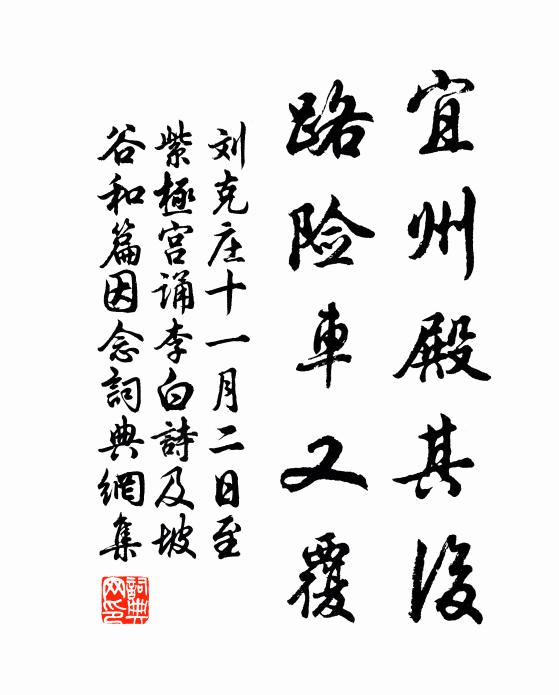 宜州殿其後
路险車又覆
刘克庄十一月二日至
紫極宫诵李白詩及坡
谷和篇因念詞典網集
詞典網印